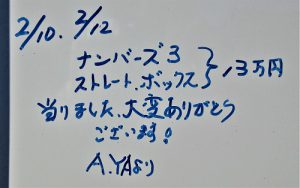 2/10. 2/12
ナンバーズ3
ストレート.ボックス } 13万円
当りました、大変ありがとう
ございます!
A.YAより